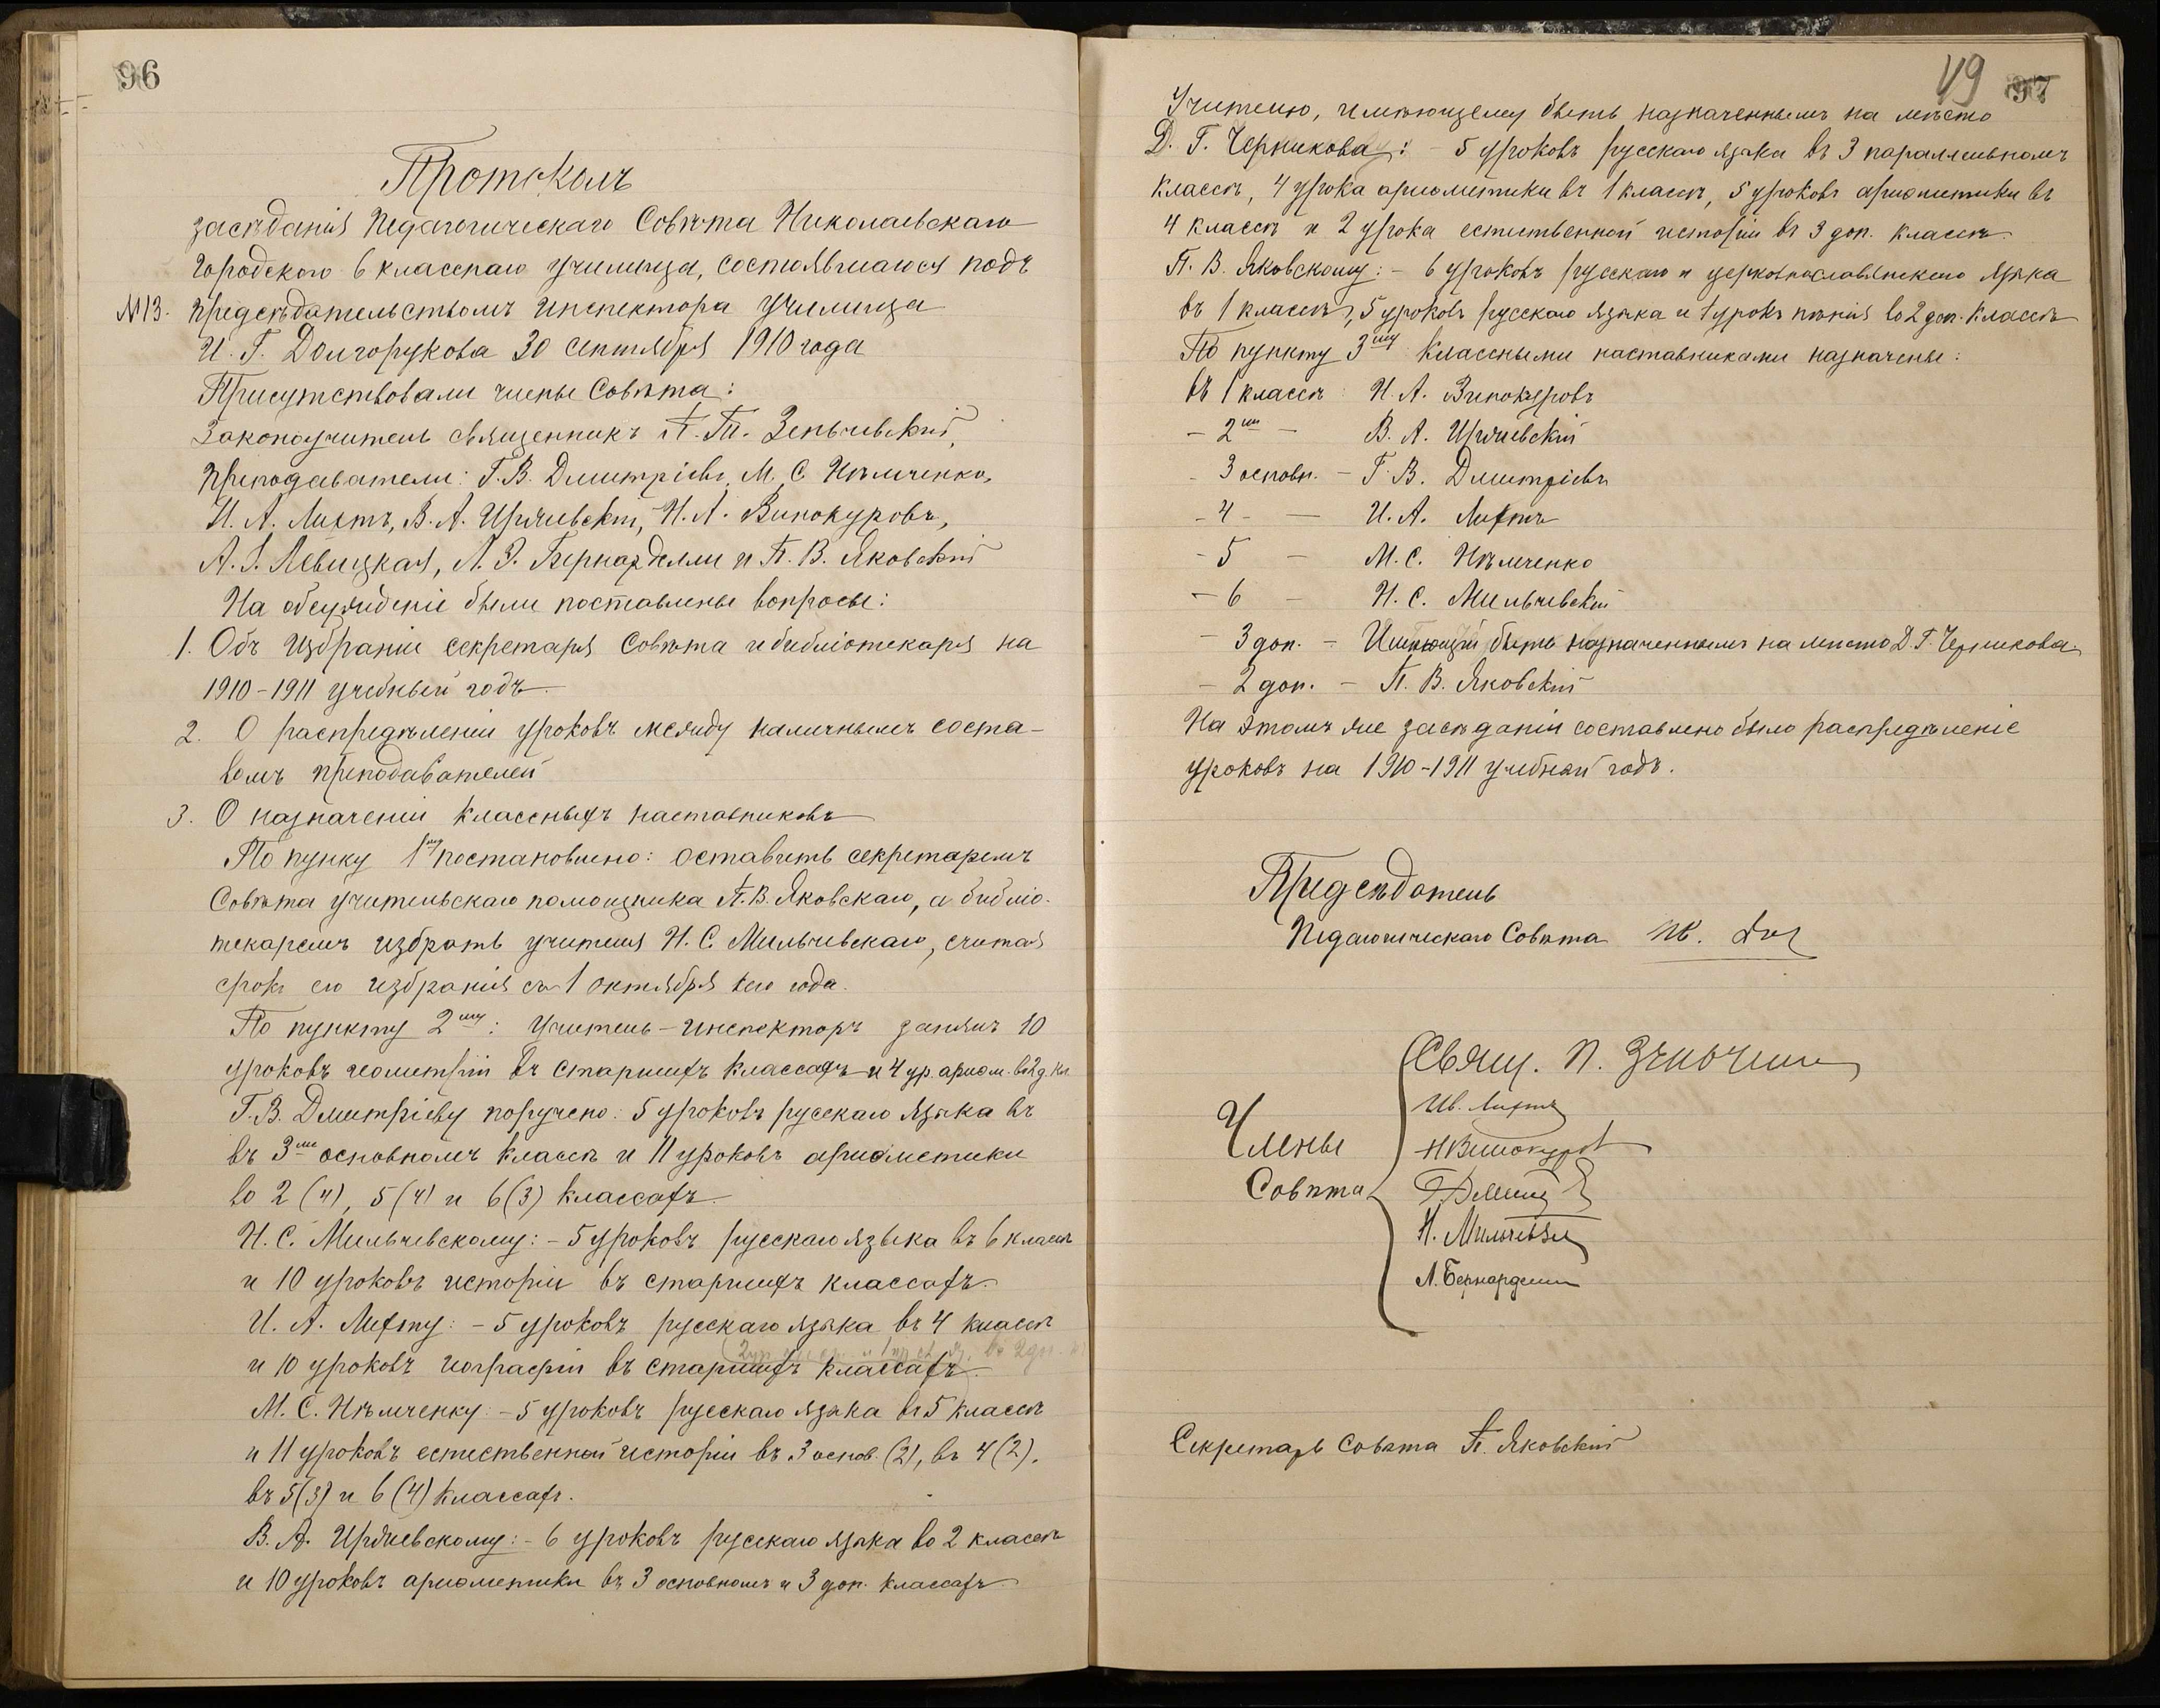 96
Протоколъ
засѣданія Педагогическаго Совѣта Николаевскаго
Городского 6 класснаго училища, состоявшагося подъ
№13. предсѣдательствомъ инспектора училища
И. Г. Долгорукова 30 сентября 1910 года
Присутствовали члены Совѣта:
Законоучитель священникъ П. Зеньчевскій,
Преподаватели: Г. В. Дмитріевъ, М. С. Нѣмченко,
И. А. Лихтъ, В. А. Н. А. Винокуровъ,
А. Левицкая, Л. Э. Бернарделли и П. В. Яковскій
На обсужденіе были поставлены вопросы:
1. Объ избраніи секретаря Совѣта и библіотекаря на
1910-1911 учебный годъ.
2. О распредѣленіи уроковъ между наличнымъ соста-
вомъ преподавателей
3. О назначеніи классныхъ наставниковъ
По пунку 1му постановлено: оставить секретаремъ
Совѣта учительскаго помощника П. В. Яковскаго, а библіо-
текаремъ избрать учителя Н. С. Мильчевскаго, считая
срокъ его избранія съ 1 октября сего года.
По пункту 2му: Учитель-инспекторъ занялъ 10
уроковъ геометріи въ старшихъ классахъ и 4 ур. ариѳм. во 2 д. кл
Г. В. Дмитріеву поручено: 5 уроковъ русскаго языка въ
въ 3мъ основномъ классѣ и 11 уроковъ ариѳметики
во 2 (4), 5 (4) и 6 (3) классахъ.
Н. С. Мильчевскому: - 5 уроковъ русскаго языка въ 6 классѣ
и 10 уроковъ исторіи въ старшихъ классахъ.
И. А. Лихту: - 5 уроковъ русскаго языка въ 4 классѣ
и 10 уроковъ географіи въ старшихъ классахъ.
М. С. Нѣмченку: - 5 уроковъ русскаго языка въ 5 классѣ
и 11 уроковъ естественной исторіи въ 3 основ. (2), въ 4 (2),
въ 5 (3) и 6 (4) классахъ.
В. А. - 6 уроковъ русскаго языка во 2 классѣ
и 10 уроковъ ариѳметики въ 3 основномъ и 3 доп. классахъ
49 97
Учителю, имѣющему быть назначеннымъ на мѣсто
Д. Г. Черникова: - 5 уроковъ русскаго языка въ 3 параллельномъ
классѣ, 4 урока ариѳметики въ 1 классѣ, 5 уроковъ ариѳметики въ
4 классѣ и 2 урока естественной исторіи въ 3 доп. классѣ.
П. В. Яковскому: - 6 уроковъ русскаго и церковнославянскаго языка
въ 1 классѣ, 5 уроковъ русскаго языка и 1 урокъ пѣнія во 2 доп. классѣ
По пункту 3му Классными наставниками назначены:
въ 1 классѣ Н. А. Винокуровъ
- 2мъ - В. А.
- 3 основн. - Г. В. Дмитріевъ
- 4 - - И. А. Лихтъ
- 5 - М. С. Нѣмченко
- 6 - Н. С. Мильчевскій
- 3 доп. - Имѣющій быть назначеннымъ на мѣсто Д. Г. Черникова
- 2 доп. - П. В. Яковскій
На этомъ же засѣданіи составлено было распредѣленіе
уроковъ на 1910-1911 учебный годъ.
Предсѣдатель
Педагогическаго Совѣта Ив. Дол
Члены
Совѣта
Свящ. П.
Ив. Лихтъ
Н Винокуров
Н. Мильчевскій
Л. Бернарделли
Секретарь Совѣта П. Яковскій